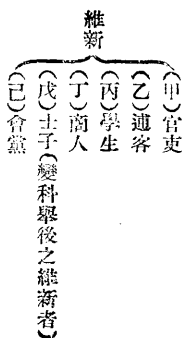 維新
(甲)官吏
(乙)逋客
(丙)學生
(丁)商人
(戊)士子(變科舉後之維新者)
(己)會黨